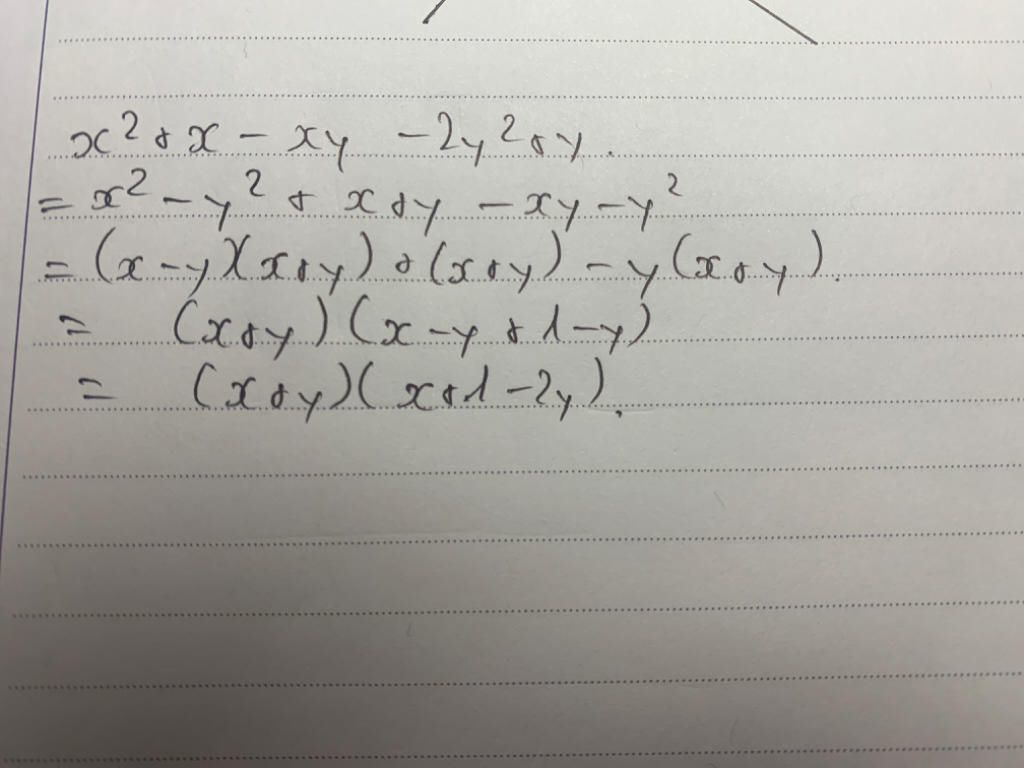 x² + x - xy - 2y² + y.
= x² - y² + x + y - xy - y²
= (x - y)(x + y) + (x + y) - y(x + y).
= (x + y)(x - y + 1 - y)
= (x + y)(x + 1 - 2y).